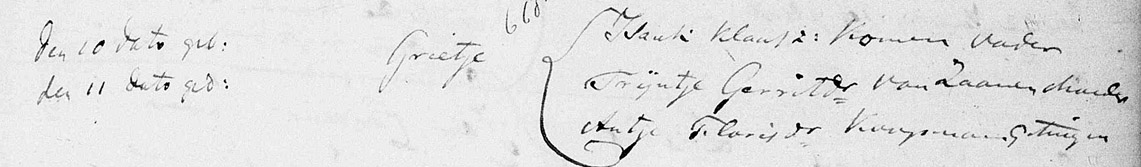 den 10 dato geb:
den 11 dato ged:
Grietje
Klaasz: Komen vader
Trijntje Gerritdr van Zaanen Moeder
Antje Florisdr Koopman Getuigen